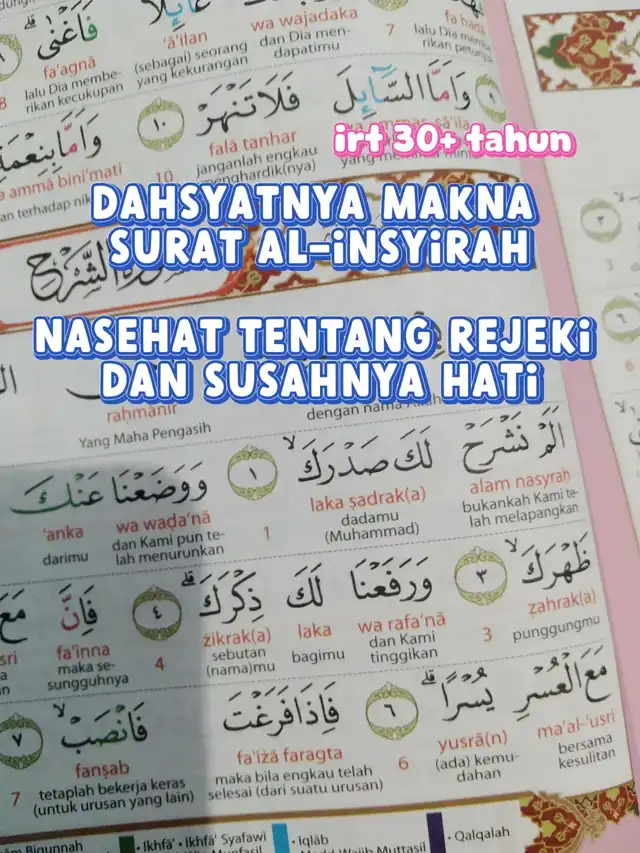 irt 30+ tahun
DAHSYATNYA MAKNA
SURAT AL-iNSYiRAH
NASEHAT TENTANG REJEKi
DAN SUSAHNYA HATi
فَاَغْنٰىۗ
fa'agnā
lalu Dia membe-
rikan kecukupan
8
'ā'ilan
(sebagai) seorang
yang kekurangan
wa wajadaka
dan Dia men-
dapatimu
7
lalu Dia
وَاَمَّا السَّاۤىِٕلَ فَلَا تَنْهَرْ ١٠
falā tanhar
janganlah engkau
menghardik(nya)
10
وَاَمَّا بِنِعْمَةِ
ammā bini'mati
terhadap
raḥmānir
Yang Maha Pengasih
dengan nama
اَلَمْ نَشْرَحْ لَكَ صَدْرَكَۙ ١ وَوَضَعْنَا عَنْكَ
alam nasyraḥ
bukankah Kami te-
lah melapangkan
laka ṣadrak(a)
dadamu
(Muhammad)
1
wa waḍa'nā
dan Kami pun te-
lah menurunkan
'anka
darimu
ظَهْرَكَۙ ٣ وَرَفَعْنَا لَكَ ذِكْرَكَۗ ٤ فَاِنَّ مَعَ
ẓahrak(a)
punggungmu
3
wa rafa'nā
dan Kami
tinggikan
laka
bagimu
żikrak(a)
sebutan
(nama)mu
4
fa'inna
maka se-
sungguhnya
مَعَ الْعُسْرِ يُسْرًاۗ ٦ فَاِذَا فَرَغْتَ فَانْصَبْۙ ٧
ma'al-'usri
bersama
kesulitan
yusrā(n)
(ada) kemu-
dahan
6
fa'iżā faragta
maka bila engkau telah
selesai (dari suatu urusan)
fanṣab
tetaplah bekerja keras
(untuk urusan yang lain)
7
Bigunnah
• Ikhfā' • Ikhfā' Syafawi
• Iqlāb
• Qalqalah